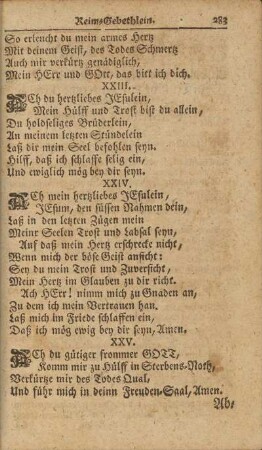 Reim-Gebethlein. 283
So erleucht du mein armes Hertz
Mit deinem Geist, des Todes Schmertz
Auch mir verkürtz genädiglich,
Mein HErr und GOtt, das bitt ich dich.
XXIII.
ACh du hertzliebes JEsulein,
Mein Hülff und Trost bist du allein,
Du holdseliges Brüderlein,
An meinem letzten Stündelein
Laß dir mein Seel befohlen seyn.
Hilff, daß ich schlaffe selig ein,
Und ewiglich mög bey dir seyn.
XXIV.
ACh mein hertzliebes JEsulein,
JEsum, den süssen Nahmen dein,
Laß in den letzten Zügen mein
Meinr Seelen Trost und Labsal seyn,
Auf daß mein Hertz erschrecke nicht,
Wenn mich der böse Geist anficht:
Sey du mein Trost und Zuversicht,
Mein Hertz im Glauben zu dir richt.
Ach HErr! nimm mich zu Gnaden an,
Zu dem ich mein Vertrauen han.
Laß mich im Friede schlaffen ein,
Daß ich mög ewig bey dir seyn, Amen.
XXV.
ACh du gütiger frommer GOTT,
Komm mir zu Hülff in Sterbens-Noth,
Verkürtze mir des Todes Qual,
Und führ mich in deinn Freuden-Saal, Amen.
Ab-